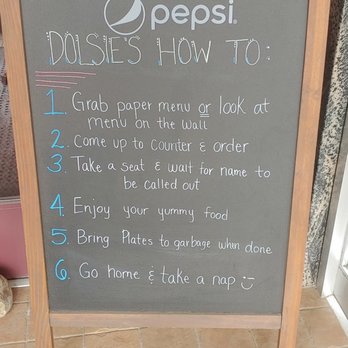 pepsi
DOLSIE'S HOW TO:
1. Grab paper menu or look at
menu on the wall
2. Come up to counter & order
3. Take a seat & wait for name to
be called out
4. Enjoy your yummy food
5. Bring Plates to garbage when done
6. Go home & take a nap